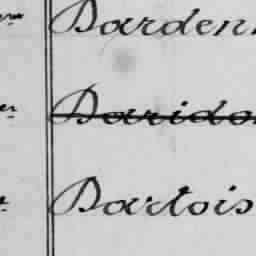 Darden
Darido
Dartois